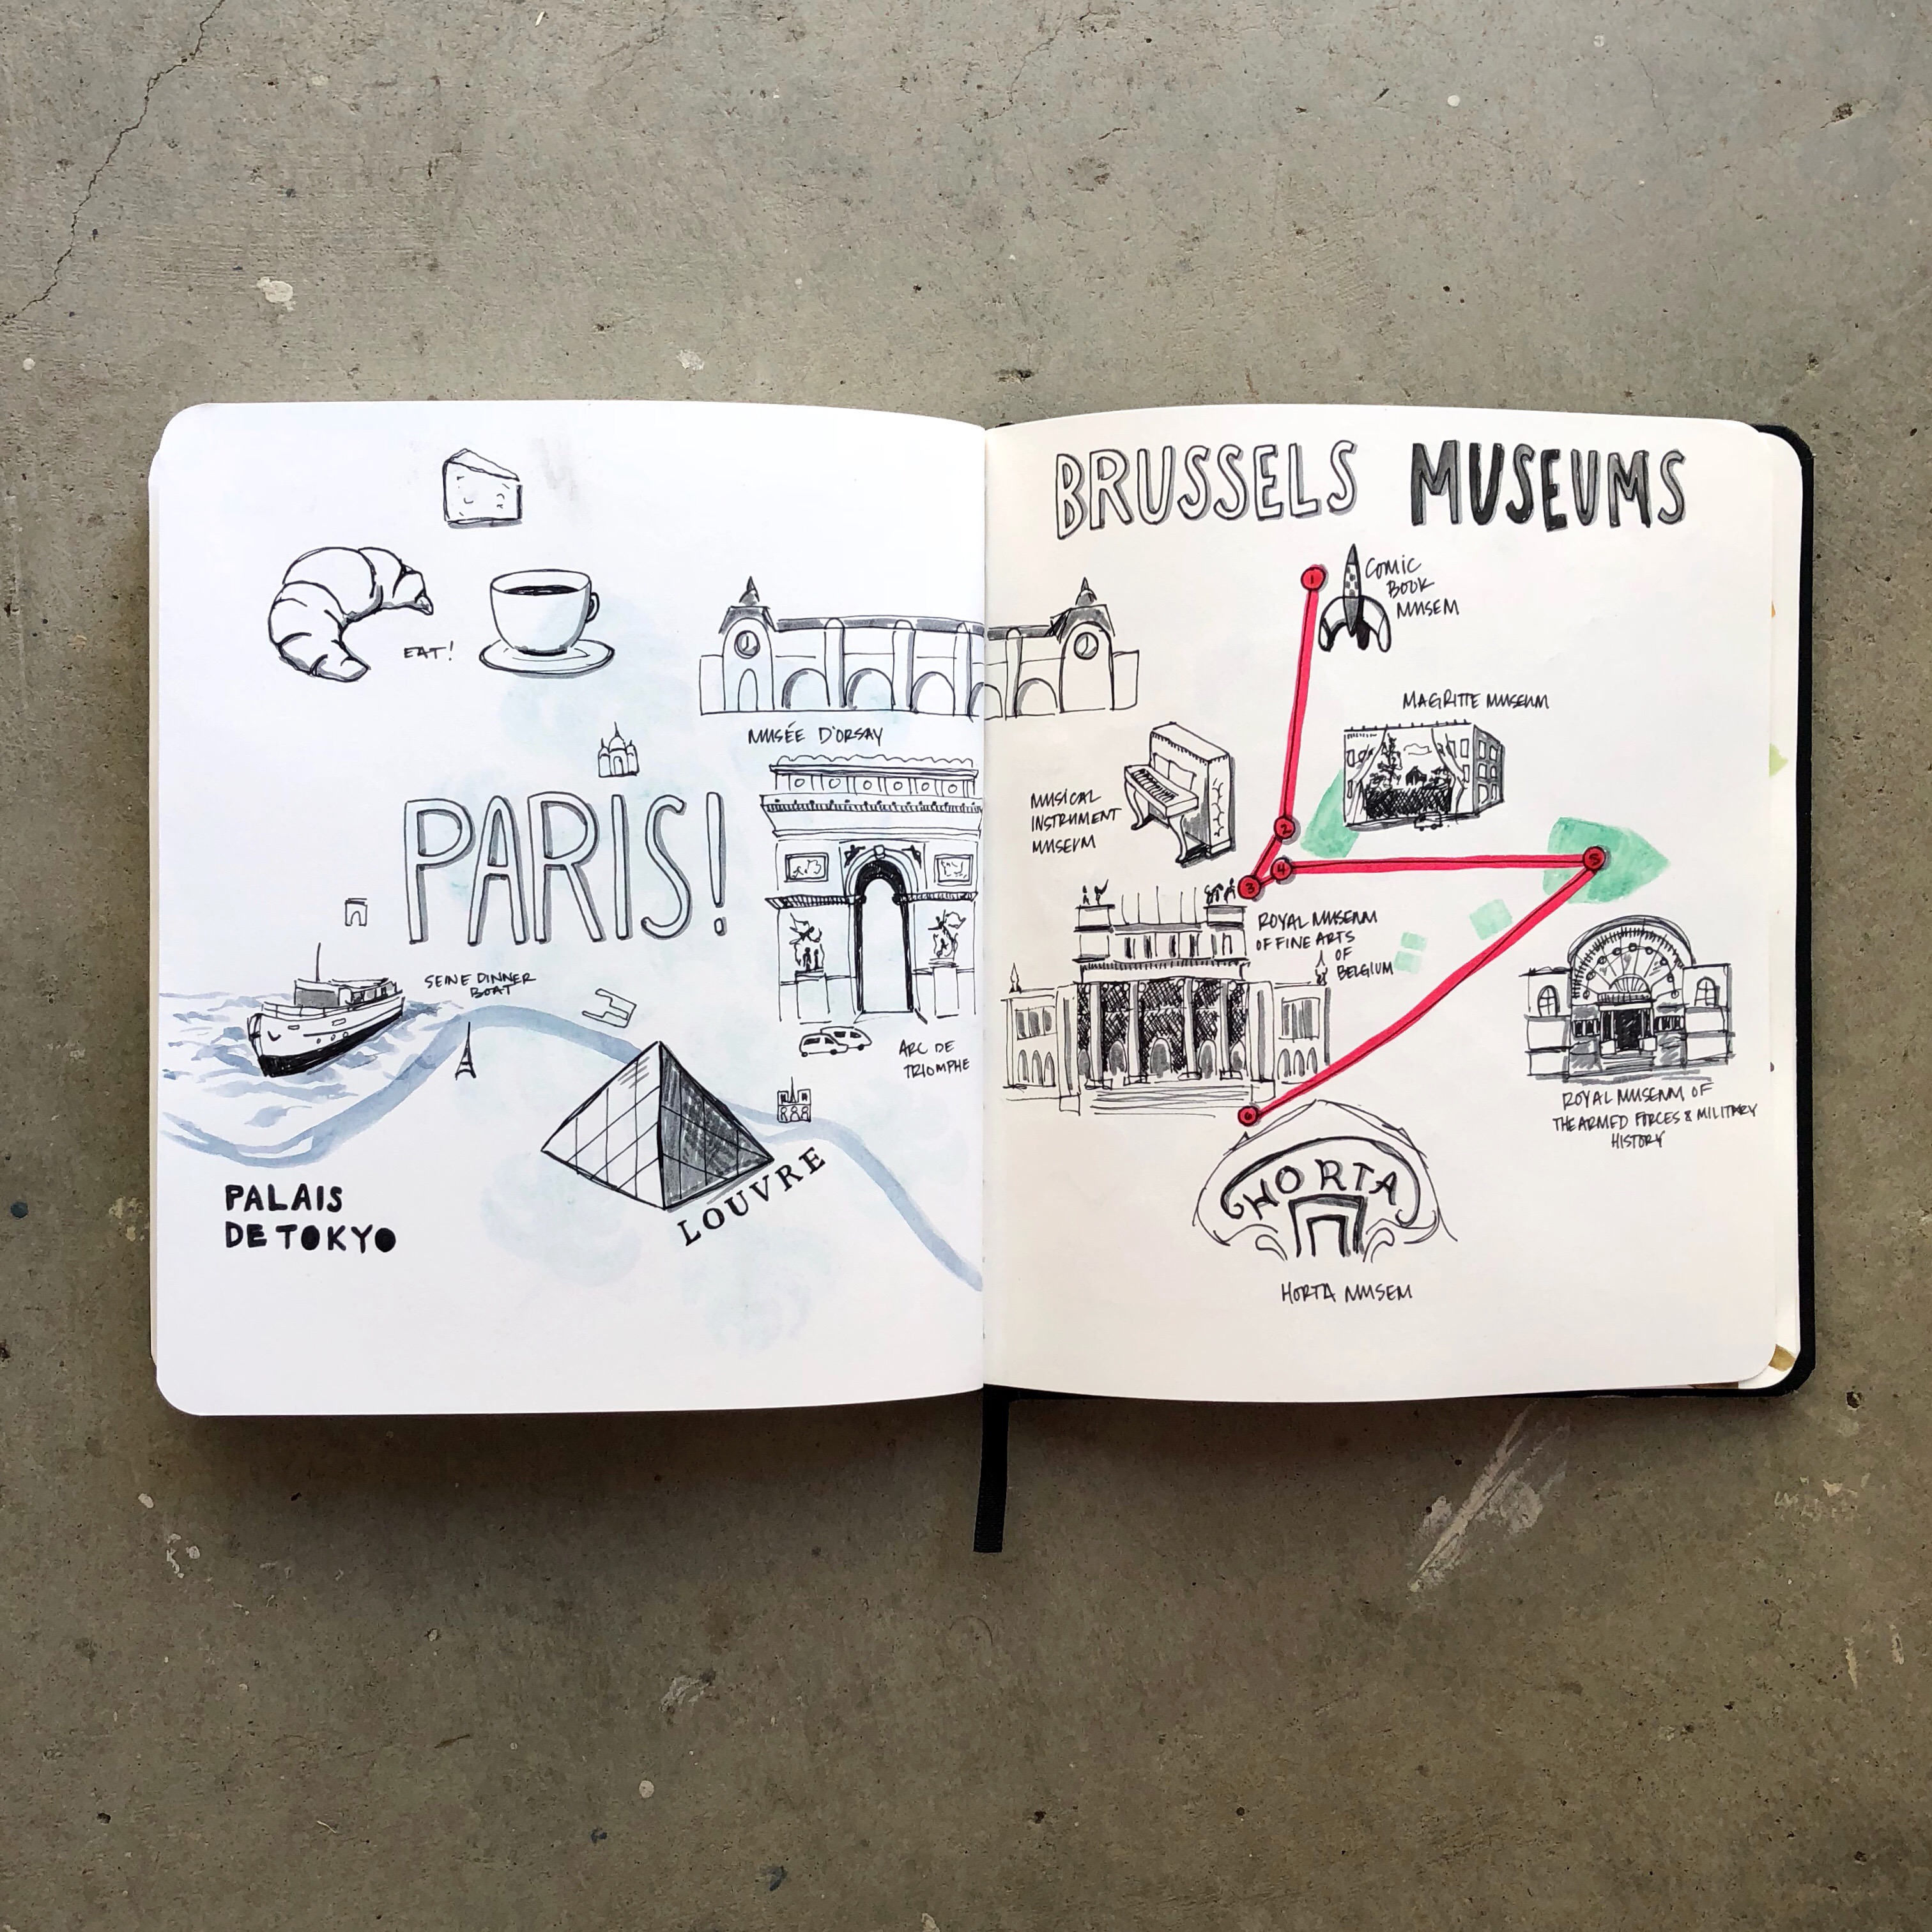 EAT!
MUSÉE D'ORSAY
PARIS!
SEINE DINNER
BOAT
ARC DE
TRIOMPHE
LOUVRE
PALAIS
DE TOKYO
BRUSSELS MUSEUMS
1
COMIC
BOOK
MUSEM
MAGRITTE MUSEUM
MUSICAL
INSTRUMENT
MUSEUM
2
4
5
3
ROYAL MUSEUM
OF FINE ARTS
OF
BELGIUM
ROYAL MUSEUM OF
THE ARMED FORCES & MILITARY
HISTORY
6
HORTA
HORTA MUSEM